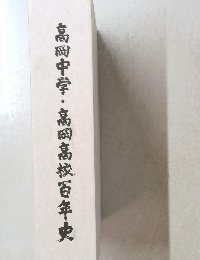 高岡中学・高岡高校百年史